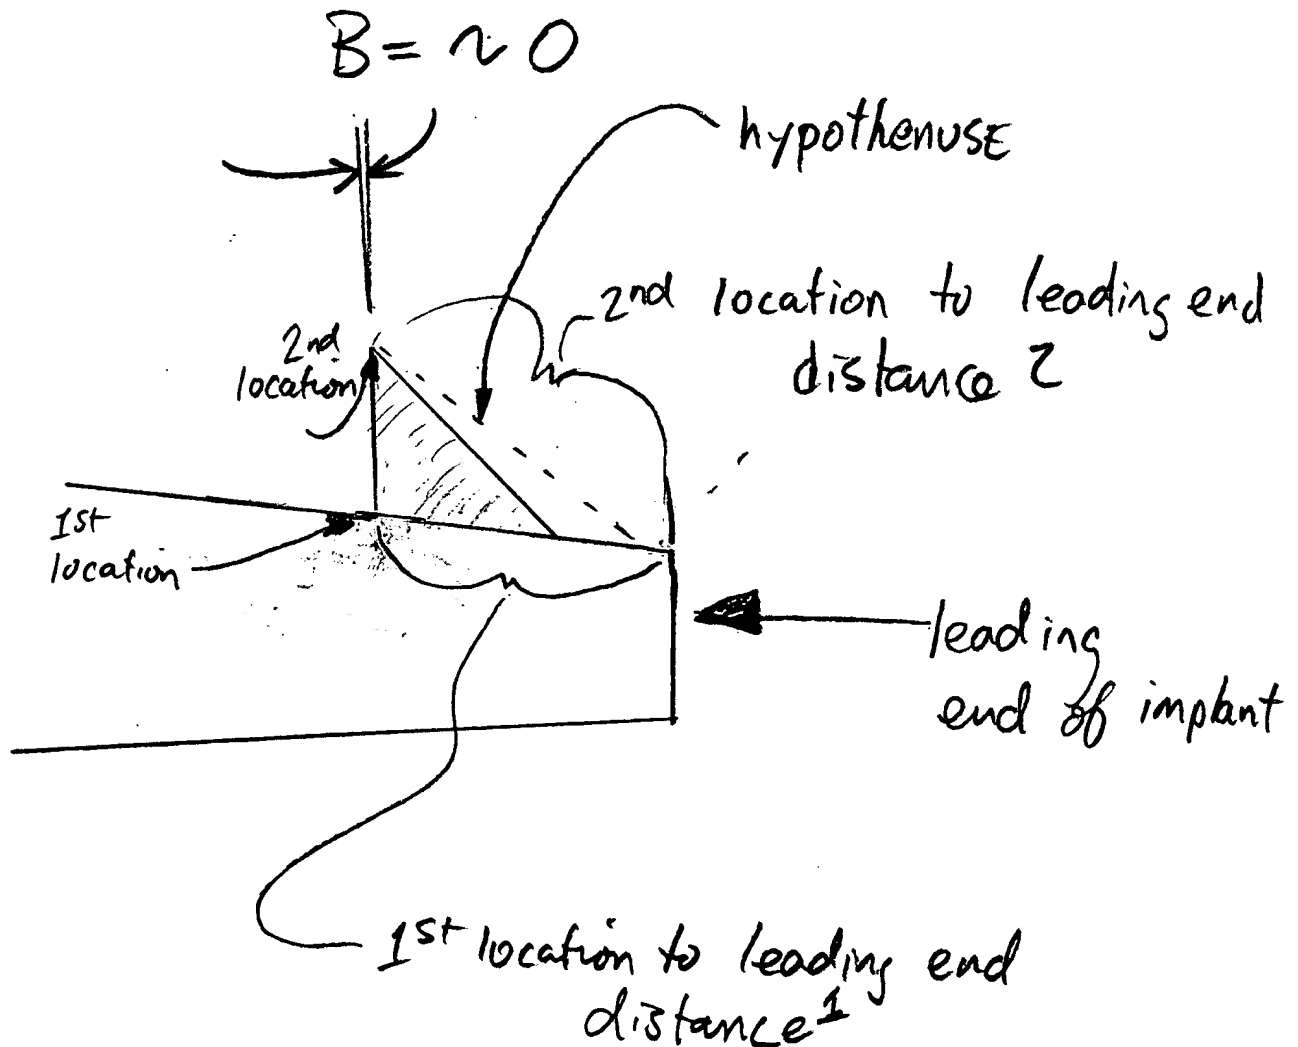 B = ~ 0
hypothenuse
2nd location to leading end
distance 2
2nd
location
1st
location
leading
end of implant
1st location to leading end
distance 1